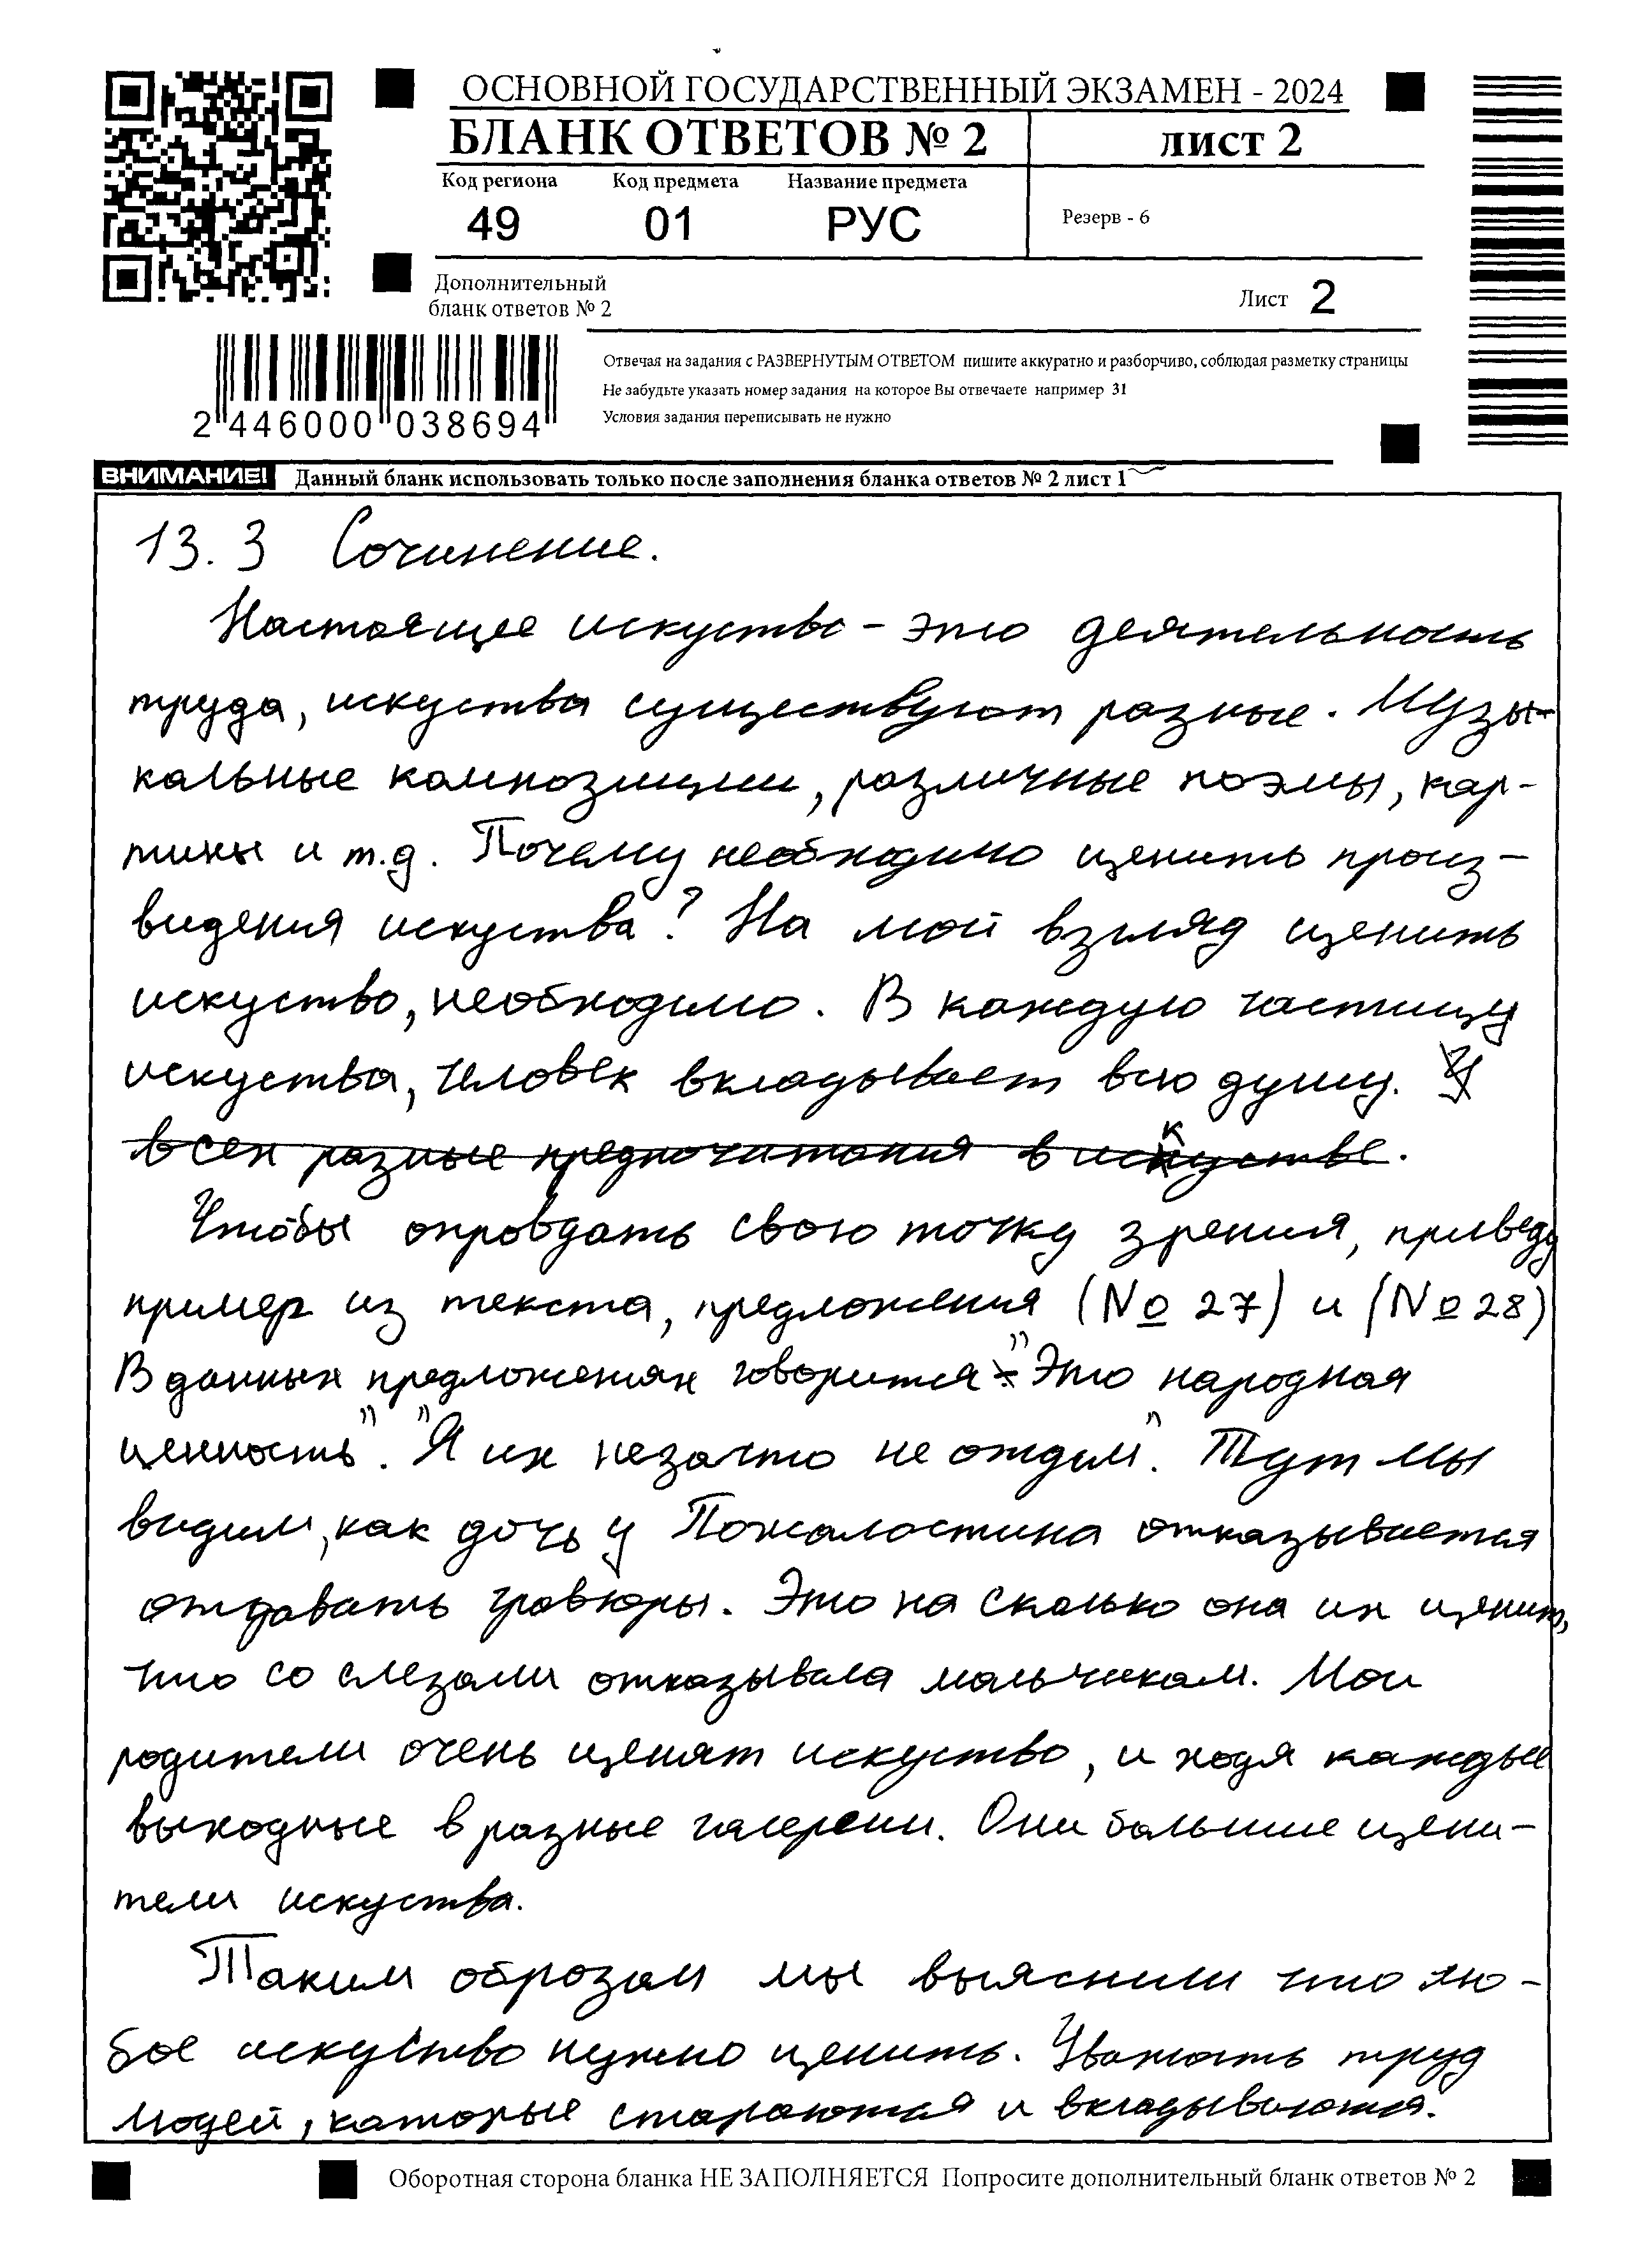 ОСНОВНОЙ ГОСУДАРСТВЕННЫЙ ЭКЗАМЕН - 2024
БЛАНК ОТВЕТОВ № 2
лист 2
Код региона Код предмета Название предмета
49 01 РУС
Резерв - 6
Дополнительный
бланк ответов № 2
Лист 2
Отвечая на задания с РАЗВЕРНУТЫМ ОТВЕТОМ пишите аккуратно и разборчиво, соблюдая разметку страницы
Не забудьте указать номер задания на которое Вы отвечаете например 31
Условия задания переписывать не нужно
2 446000 038694
ВНИМАНИЕ! Данный бланк использовать только после заполнения бланка ответов № 2 лист 1
13.3 Сочинение.
Настоящее искуство - это деятельность
труда, искуства существуют разные. Музы-
кальные композиции, различные поэмы, кар-
тины и т.д. Почему необходимо ценить произ-
видения искуства? На мой взгляд ценить
искуство, необходимо. В каждую частицу
искуства, человек вкладывает всю душу. У
всех разные предпочитания в искустве.
Чтобы оправдать свою точку зрения, приведу
пример из текста, предложения (№ 27) и (№ 28)
В данных предложениях говорится "Это народная
ценность". "Я их незачто не отдам". Тут мы
видим, как дочь у Пожалостина отказывается
отдавать гравюры. Это на сколько она их ценит,
что со слезами отказывала мальчикам. Мои
родители очень ценят искуство, и ходя каждые
выходные в разные галереии. Они большие цени-
тели искуства.
Таким образом мы выяснили что лю-
бое искуство нужно ценить. Уважать труд
людей, каторые стараются и вкладываются.
Оборотная сторона бланка НЕ ЗАПОЛНЯЕТСЯ Попросите дополнительный бланк ответов № 2